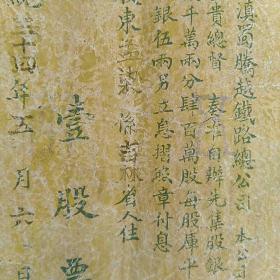 滇蜀騰越鐵路總公司 本公司
貴總督 奏准自辦先集股銀
千萬兩分肆百萬股每股庫平
銀伍兩另立息摺照章付息
東孟 係吉林省人住
壹股票
統三十四年五月六日